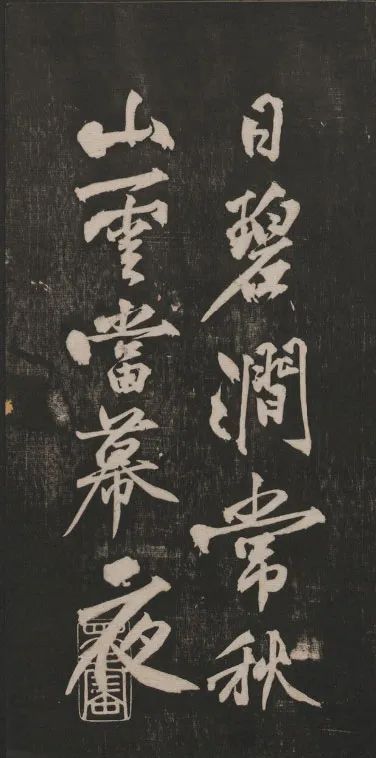 日碧澗常秋
山雲當幕夜